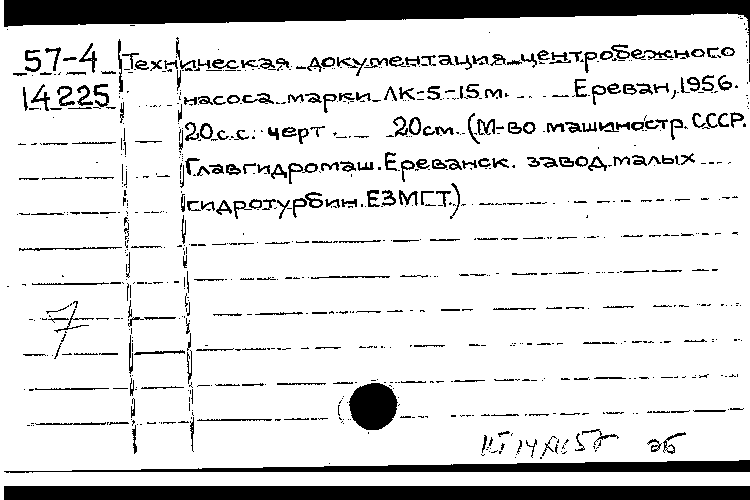 57-4 Техническая документация центробежного
14225 насоса марки ЛК-5-15м. Ереван, 1956.
20с.с. черт. 20см. (М-во машиностр. СССР.
Главгидромаш. Ереванск. завод малых
гидротурбин. ЕЗМГТ.)
7